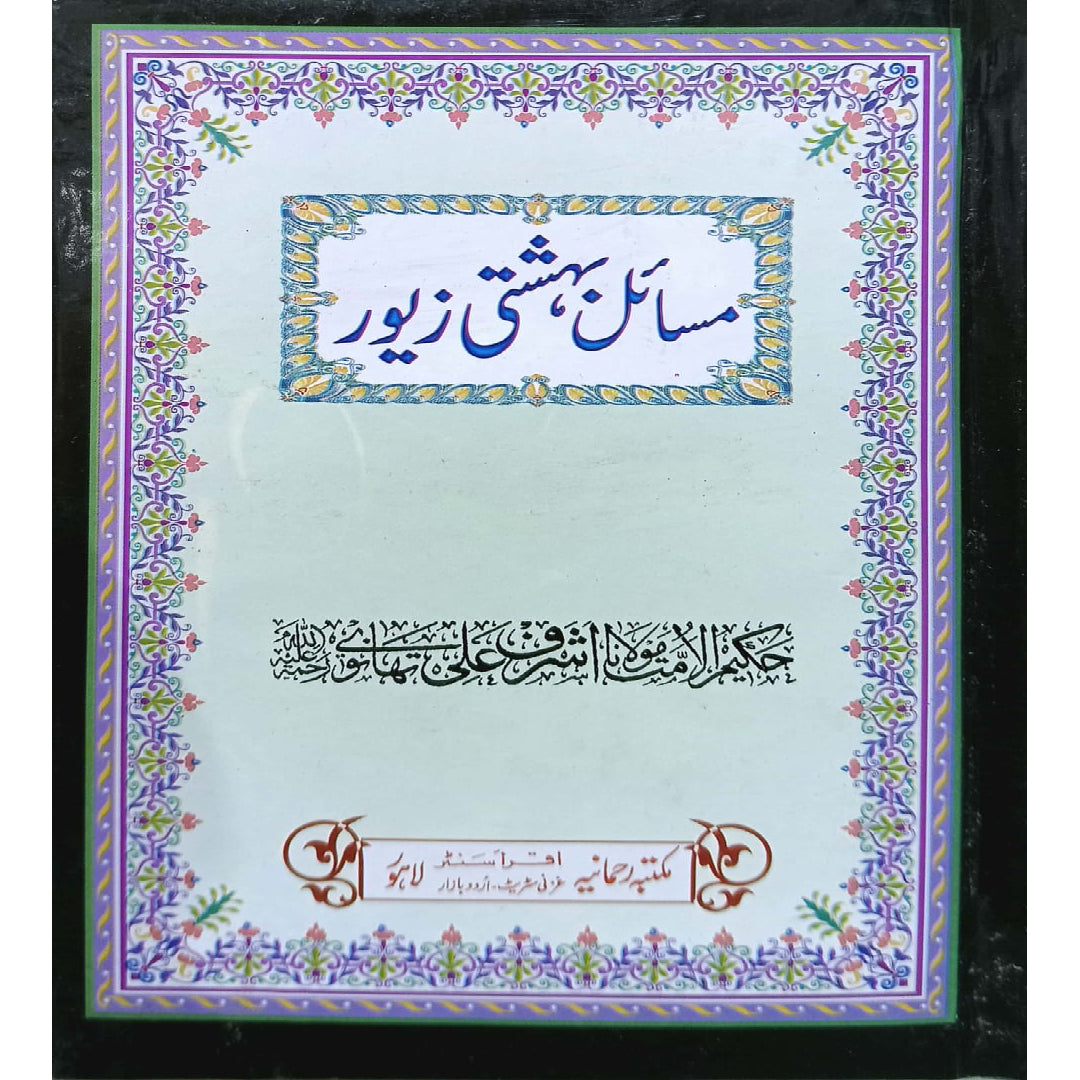 مسائل بہشتی زیور
حکیم الامت مولانا اشرف علی تھانوی رحمۃ اللہ علیہ
مکتبہ رحمانیہ اقرأ سنٹر
غزنی سٹریٹ۔ اردو بازار لاہور